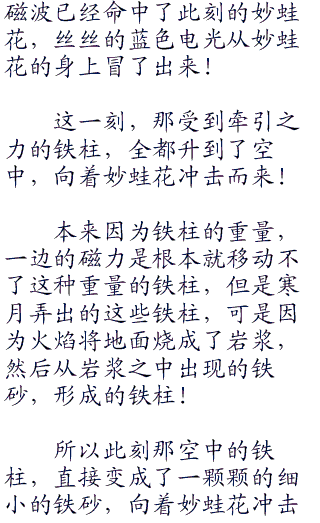 磁波已经命中了此刻的妙蛙
花，丝丝的蓝色电光从妙蛙
花的身上冒了出来！
这一刻，那受到牵引之
力的铁柱，全都升到了空
中，向着妙蛙花冲击而来！
本来因为铁柱的重量，
一边的磁力是根本就移动不
了这种重量的铁柱，但是寒
月弄出的这些铁柱，可是因
为火焰将地面烧成了岩浆，
然后从岩浆之中出现的铁
砂，形成的铁柱！
所以此刻那空中的铁
柱，直接变成了一颗颗的细
小的铁砂，向着妙蛙花冲击